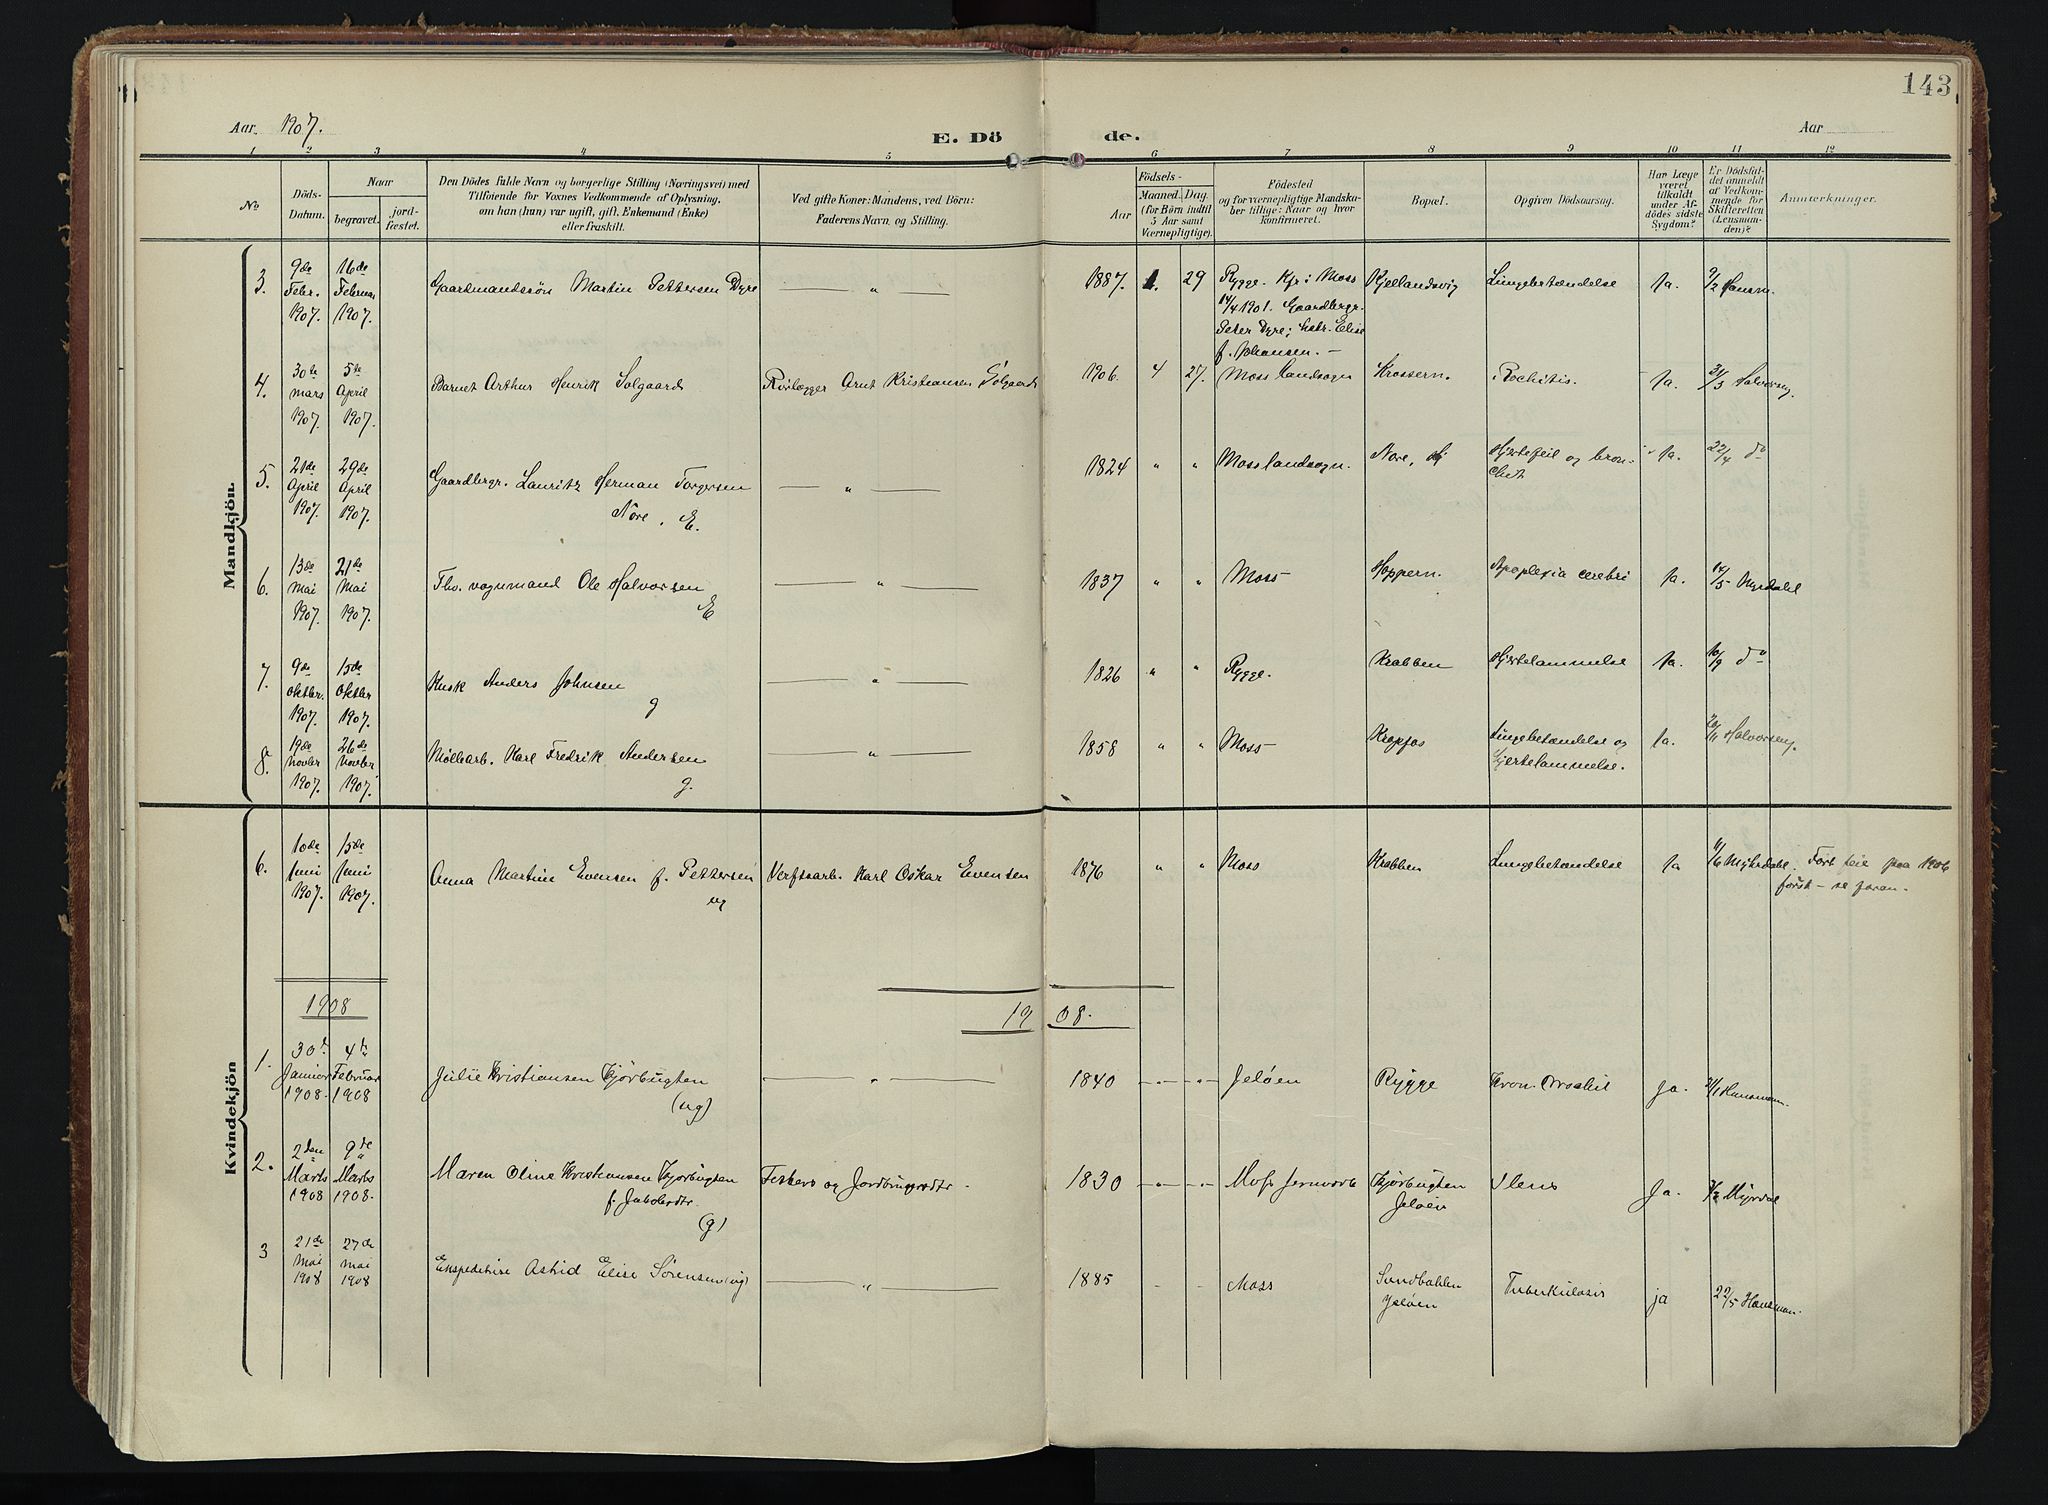 143
Aar 1907.
E. Dö
de.
Aar
1 2 3 4 5 6 7 8 9 10 11 12
No
Döds-Datum.
Naar
begravet.
jordfæstet.
Den Dödes fulde Navn og borgerlige Stilling (Næringsvei) med
Tilföiende for Voxnes Vedkommende af Oplysning,
om han (hun) var ugift, gift, Enkemand (Enke)
eller fraskilt.
Ved gifte Koner: Mandens, ved Börn:
Faderens Navn og Stilling.
Födsels-
Aar
Maaned. Dag.
(for Börn indtil
5 Aar samt
Værnepligtige).
Födested
og for værnepligtige Mandska-
ber tillige: Naar og hvor
konfirmeret.
Bopæl.
Opgiven Dödsaarsag.
Har Læge
været
tilkaldt
under Af-
dödes sidste
Sygdom?
Er Dödsfal-
det anmeldt
af Vedkom-
mende for
Skifteretten
(Lensman-
den)?
Anmærkninger.
Mandkjön.
3. 9de Febr. 1907. 16de Februar 1907. Gaardmandssön Martin Pettersen Dyre — " — 1887. 1. 29 Rygge. Kf. i Moss Kjellandsvig Lungebetændelse Ja. 9/2 Hansm.
14/4 1901. Gaardbrgr.
Peter Dyre; hstr. Elise
f. Johansen. —
4. 30te mars 1907. 5te April 1907. Barnet Arthur Henrik Solgaard Arnt Kristiansen Solgaard 1906. 4 27. Moss landsogn Krossern. Rachitis. Ja. 31/3 Halvorsen.
5. 21de April 1907. 29de April 1907. Gaardbrgr. Lauritz Herman Torgersen — " — 1824 " " Moss landsogn. Nore, Hjertefeil og bron-
chit Ja. 22/4 do
Nore. E.
6. 13de Mai 1907. 21de Mai 1907. Fhv. vognmand Ole Halvorsen — " — 1837 " " Moss Hoppern. Apoplexia cerebri Ja. 14/5 Myrdahl
E
7. 9de Oktbr. 1907. 15de Oktbr. 1907. Kusk Anders Johnsen — " — 1826 " " Rygge. Krabben Hjertelammelse Ja. 10/9 do
g
8. 19de Novbr 1907. 26de Novbr 1907. Möllearb. Karl Fredrik Andersen — " — 1858 " " Moss Krapfos Lungebetændelse og
Hjertelammelse. Ja. 20/11 Halvorsen.
g.
Kvindekjön
6. 10de Juni 1907. 15de Juni 1907. Anna Martine Evensen f. Pettersen Verftsarb. Karl Oskar Evensen 1876 " " Moss Krabben Lungebetændelse Ja 11/6 Myhrdahl. Fört feil paa 1906
först — se foran.
ug
1908
19 08.
1. 30te Januar 1908. 4te Februar 1908 Julie Kristiansen Kjörbugten — " — 1840 -"- -"- Jelöen Rygge Kron. Ja. 31/1 Hansman.
(ug)
2. 2den Marts 1908 9de Marts 1908. Maren Oline Kristiansen Kjörbugten Fiskers og 1830 -"- -"- Moss Jernverk Kjörbugten
Jelöen Ilens Ja. 3/3 Myrdal
f. Jakobsdtr.
(g)
3 21de Mai 1908 27de Mai 1908 Ekspeditrise Astrid Elise Sörensen (ug) — " — 1885 - - Moss Sandbakken
Jelöen Tuberkulosis ja 22/5 Hansman.